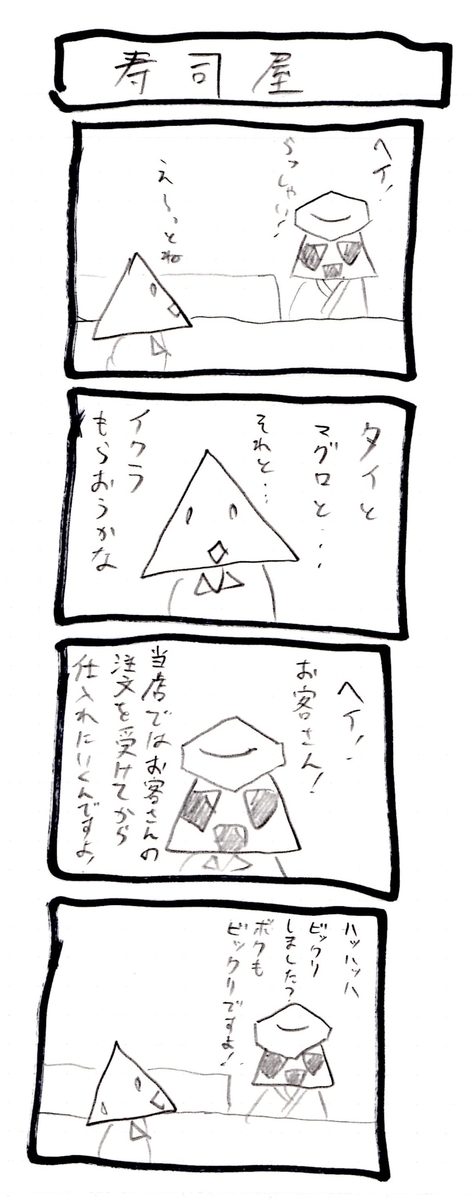 寿司屋
ヘイ!
らっしゃい!
え〜っとね
タイと
マグロと・・・
それと・・・
イクラ
もらおうかな
ヘイ!
お客さん!
当店ではお客さんの
注文を受けてから
仕入れにいくんですよ!
ハッハッハ
ビックリ
しました?
ボクも
ビックリですよ!